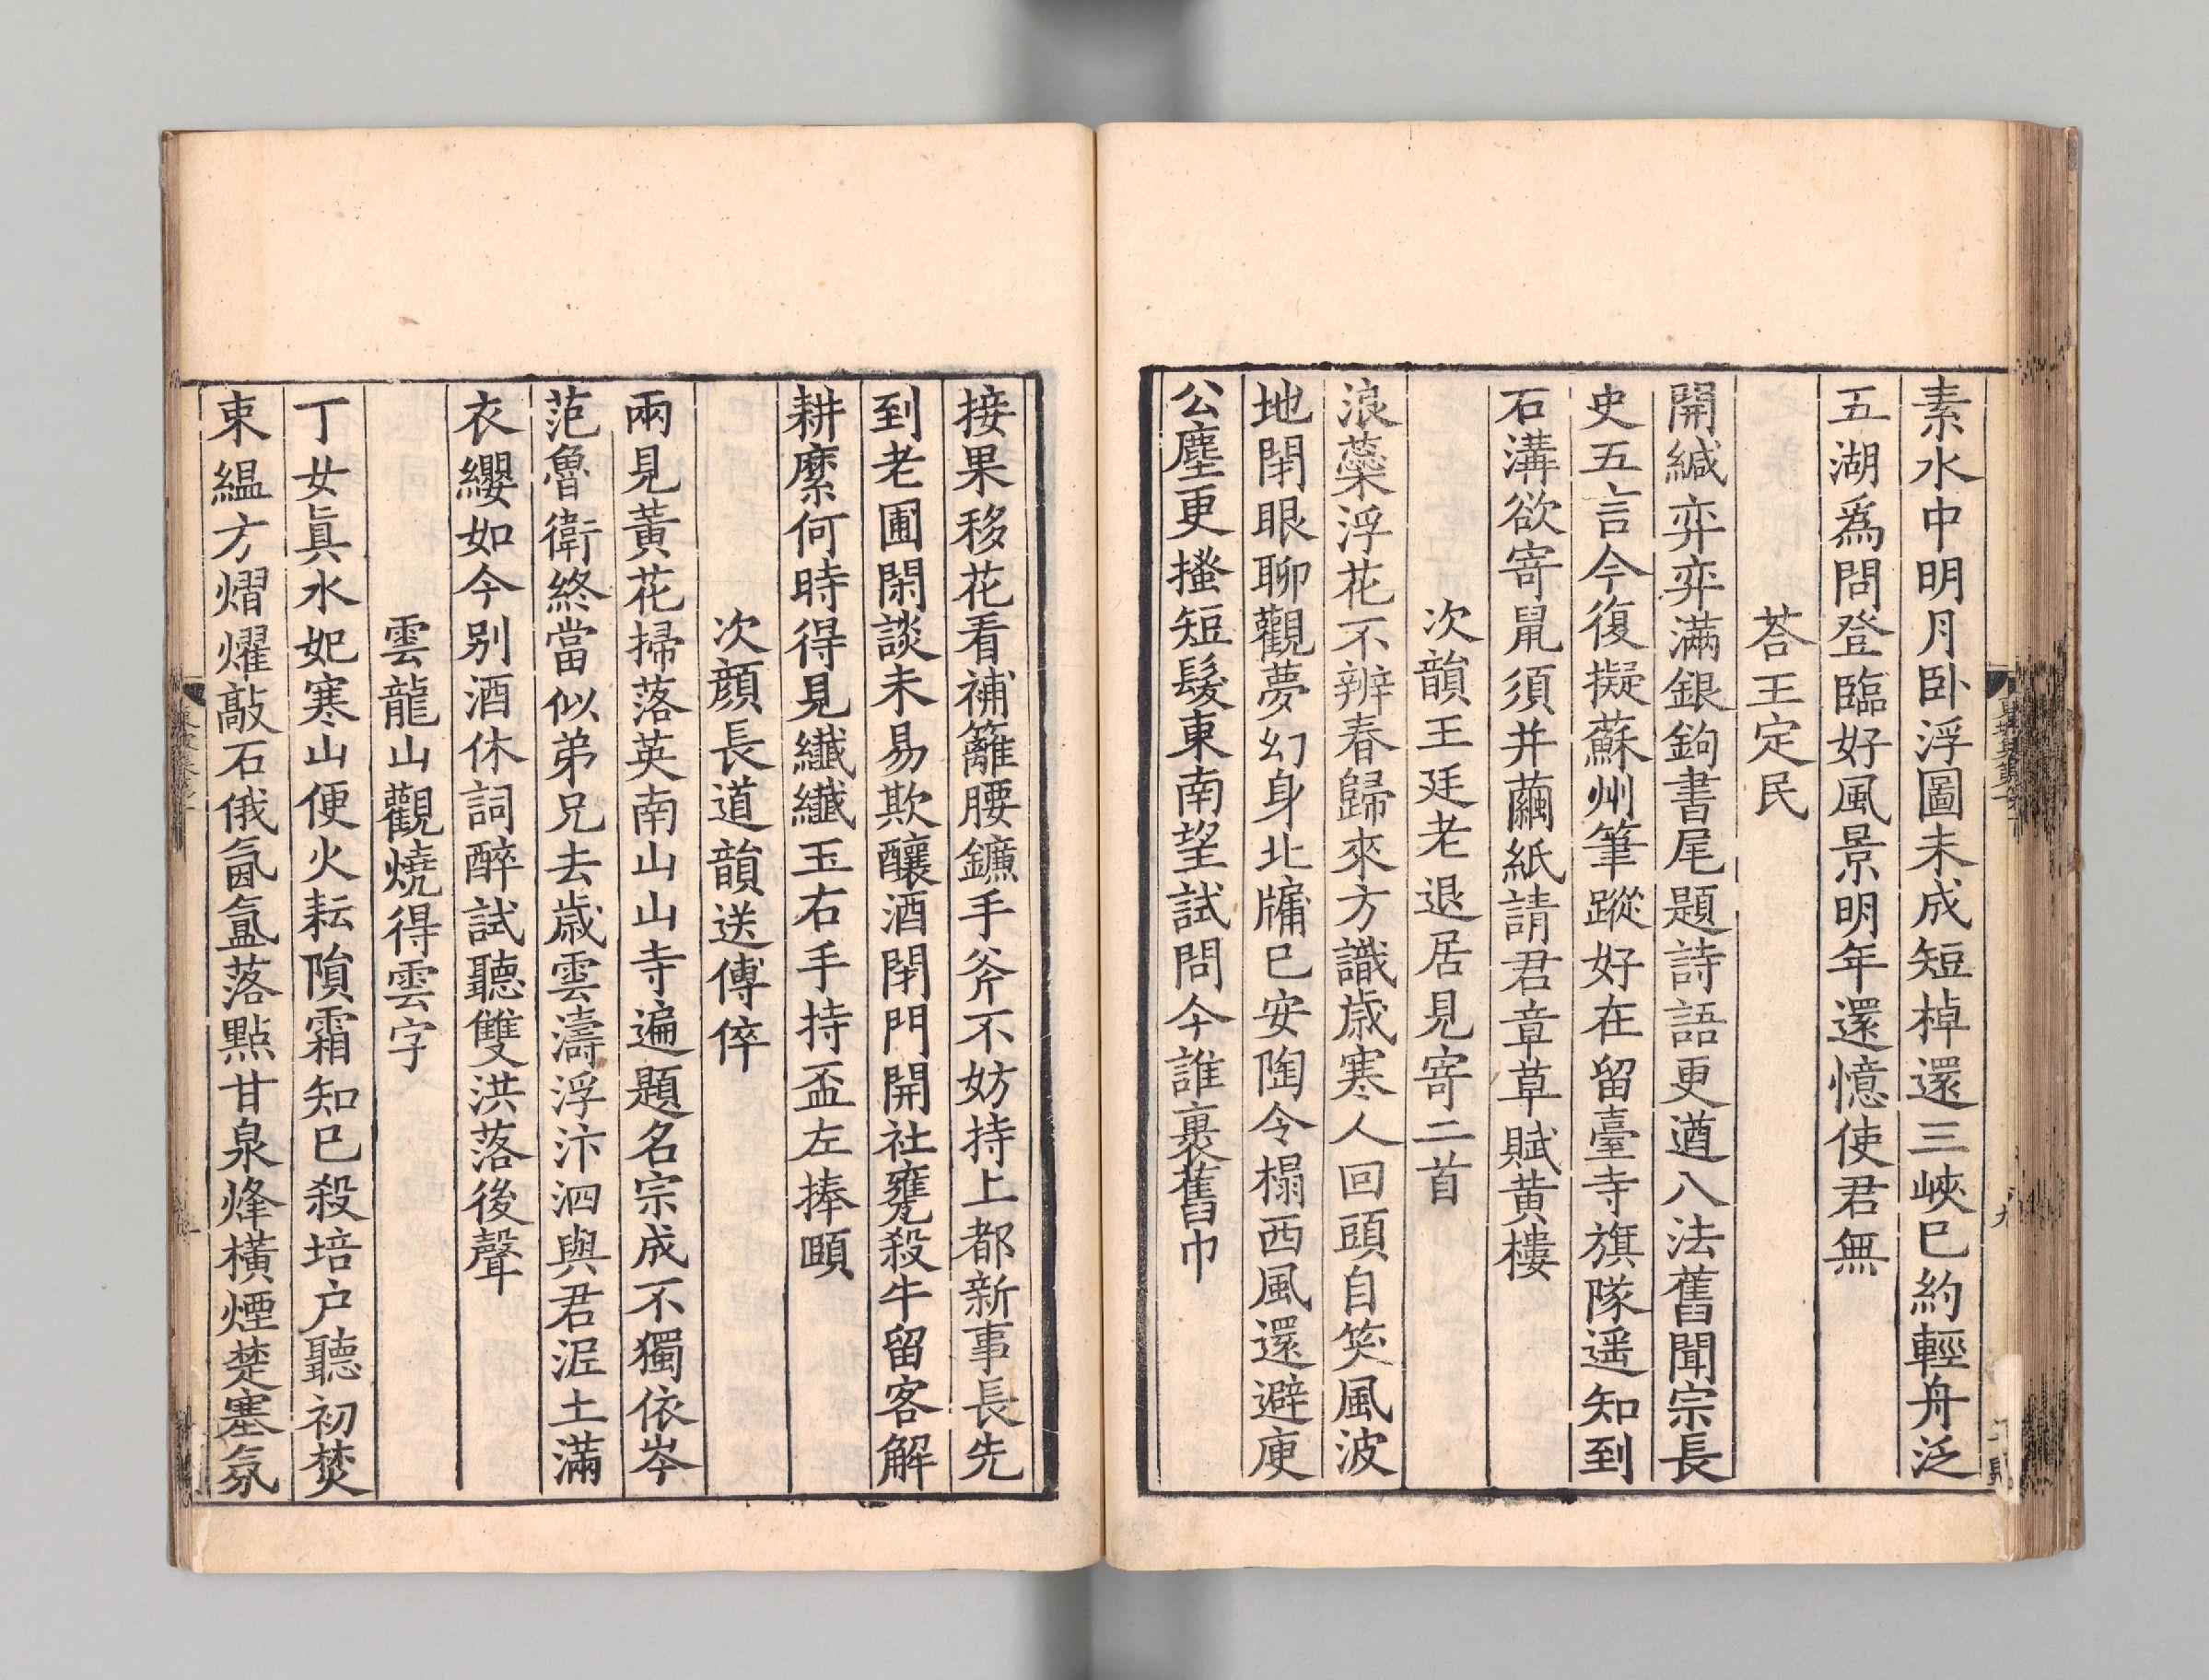 素水中明月卧浮圖未成短棹還三峽巳約輕舟泛
五湖爲問登臨好風景明年還憶使君無
荅王定民
開緘弈弈滿銀鉤書尾題詩語更遒八法舊聞宗長
史五言今復擬蘇州筆蹤好在留臺寺旗隊遥知到
石溝欲寄鼠須并繭紙請君章草賦黄樓
次韻王廷老退居見寄二首
浪蘂浮花不辨春歸來方識歳寒人回頭自笑風波
地閉眼聊觀夢幻身北牖巳安陶令榻西風還避庾
公塵更搔短髮東南望試問今誰裹舊巾
接果移花看補籬腰鐮手斧不妨持上都新事長先
到老圃閑談未易欺釀酒閉門開社甕殺牛留客解
耕縻何時得見纖纖玉右手持盃左捧頤
次顔長道韻送傅倅
兩見黃花掃落英南山山寺遍題名宗成不獨依岑
范魯衛終當似弟兄去歳雲濤浮汴泗與君泥土滿
衣纓如今别酒休詞醉試聽雙洪落後聲
雲龍山觀燒得雲字
丁女眞水妃寒山便火耘隕霜知巳殺培户聽初焚
束緼方熠燿敲石俄氤氳落點甘泉烽橫煙楚塞氛